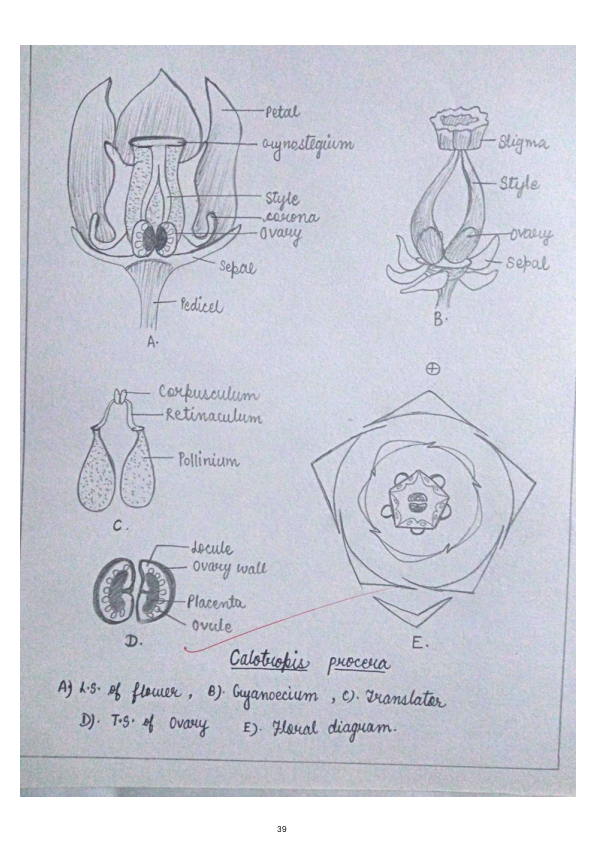 Petal
Gynostegium
Style
corona
Ovary
Sepal
Pedicel
A.
Stigma
Style
Ovary
Sepal
B.
Corpusculum
Retinaculum
Pollinium
C.
Locule
Ovary wall
Placenta
Ovule
D.
E.
Calotropis procera
A) L.S. of flower, B). Gyanoecium, C). Translator
D). T.S. of Ovary E). Floral diagram.
39